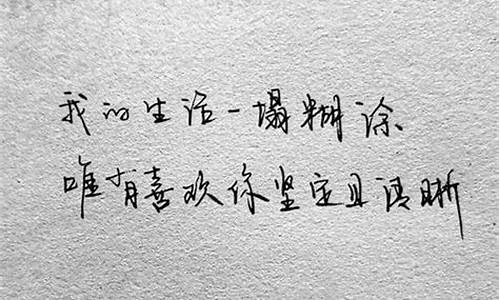 我的生活一塌糊涂、
唯有喜欢你坚定且清晰